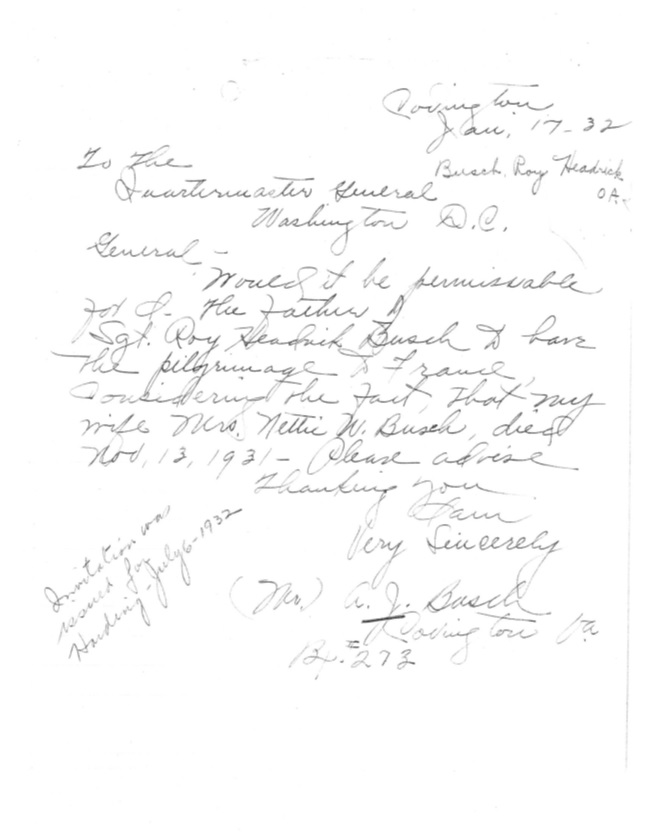 Covington
Jan, 17-32
Busch, Roy Headrick
To the
Quartermaster General
Washington D.C.
General -
Would it be permissable
for I - the Father of
Sgt. Roy Headrick Busch to have
the pilgrimage to France,
Considering the Fact, that my
wife Mrs. Nettie W. Busch, died
Nov, 13, 1931 - Please advise
Thanking you
I am
Very Sincerely
(Mr.) A. J. Busch
Covington Va
Bx. 273
Invitation was
issued for
Harding - July 6 - 1932